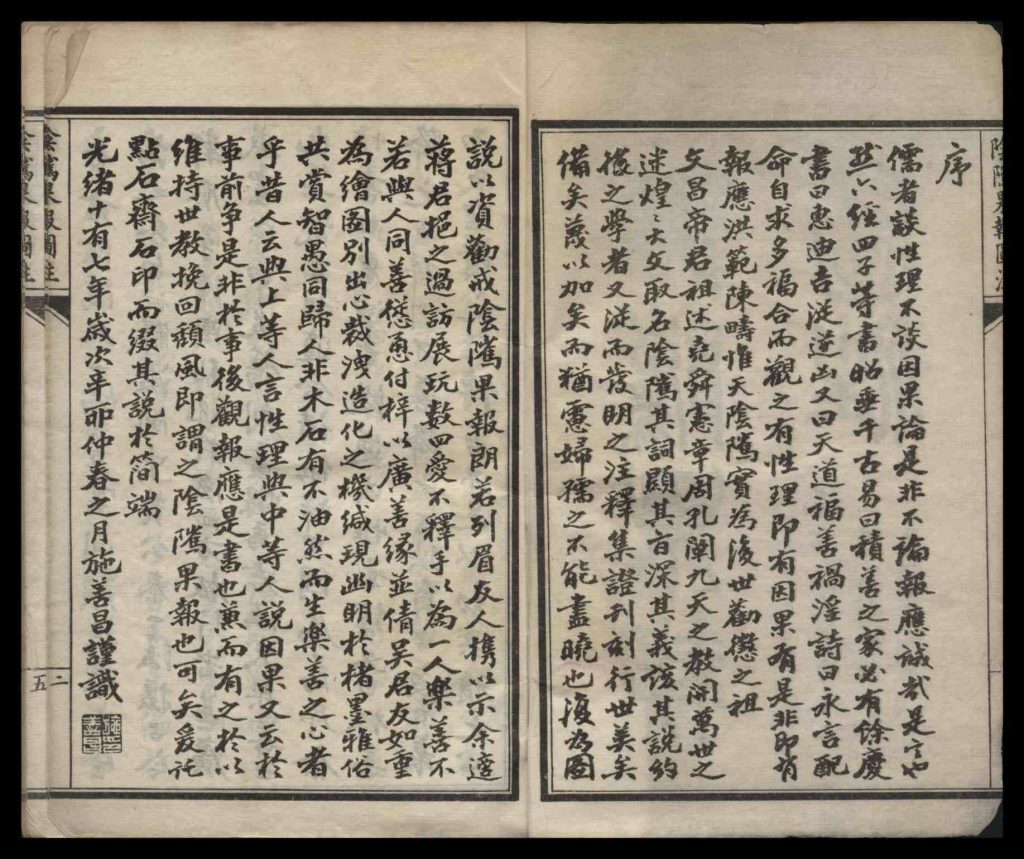 序
儒者談性理不談因果論是非不論報應誠哉是言也
然六經四子等書昭垂千古易曰積善之家必有餘慶
書曰惠迪吉從逆凶又曰天道福善禍淫詩曰永言配
命自求多福合而觀之有性理即有因果有是非即有
報應洪範陳疇惟天陰隲實為後世勸懲之祖
文昌帝君祖述堯舜憲章周孔闡九天之教開萬世之
迷煌〻大文取名陰隲其詞顯其旨深其義該其說約
後之學者又從而發明之注釋集證刊刻行世美矣
備矣蔑以加矣而猶慮婦孺之不能盡曉也復為圖
說以資勸戒陰隲果報朗若列眉友人攜以示余適
蔣君挹之過訪展玩數四愛不釋手以為一人樂善不
若與人同善慫恿付梓以廣善緣並倩吳君友如重
為繪圖別出心裁洩造化之機緘現幽明於楮墨雅俗
共賞智愚同歸人非木石有不油然而生樂善之心者
乎昔人云與上等人言性理與中等人說因果又云於
事前爭是非於事後觀報應是書也兼而有之於以
維持世教挽回頹風即謂之陰隲果報也可矣爰託
點石齋石印而綴其說於簡端
光緒十有七年歲次辛卯仲春之月施善昌謹識
陰隲果報圖注
二
五